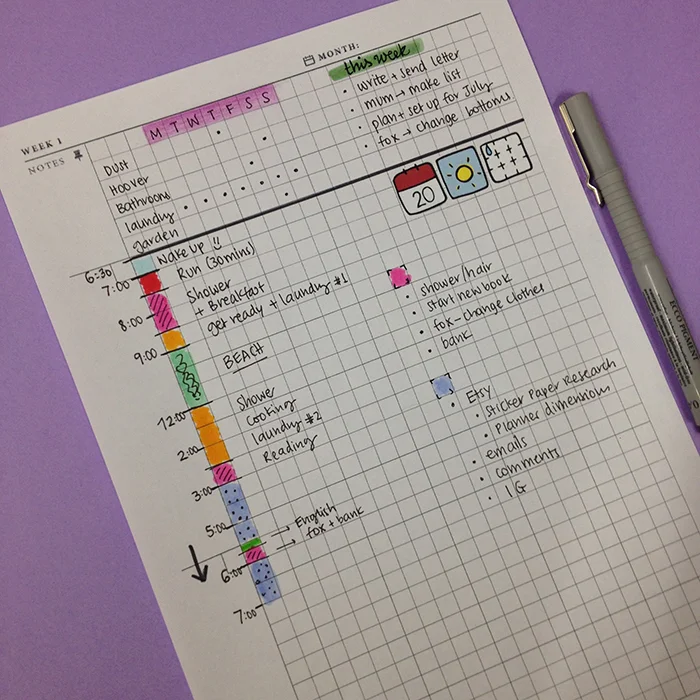 MONTH:
WEEK 1
NOTES
M T W T F S S
Dust
Hoover
Bathrooms
laundry
garden
this week
• write + send letter
• mum → make list
• plan + set up for July
• fox → change bottoms
20
6:30
Wake up
7:00
Run (30mins)
Shower
+ Breakfast
8:00
get ready + laundry #1
9:00
BEACH
12:00
Shower
Cooking
laundry #2
2:00
Reading
3:00
5:00
→ English
→ fox + bank
6:00
7:00
• shower/hair
• start new book
• fox - change clothes
• bank
• Etsy
• Sticker Paper Research
• Planner dimensions
• emails
• comments
• IG